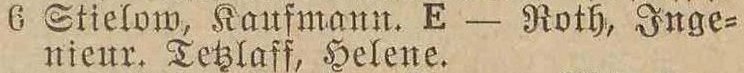 6 Stielow, Kaufmann. E — Roth, Inge=
nieur. Tetzlaff, Helene.